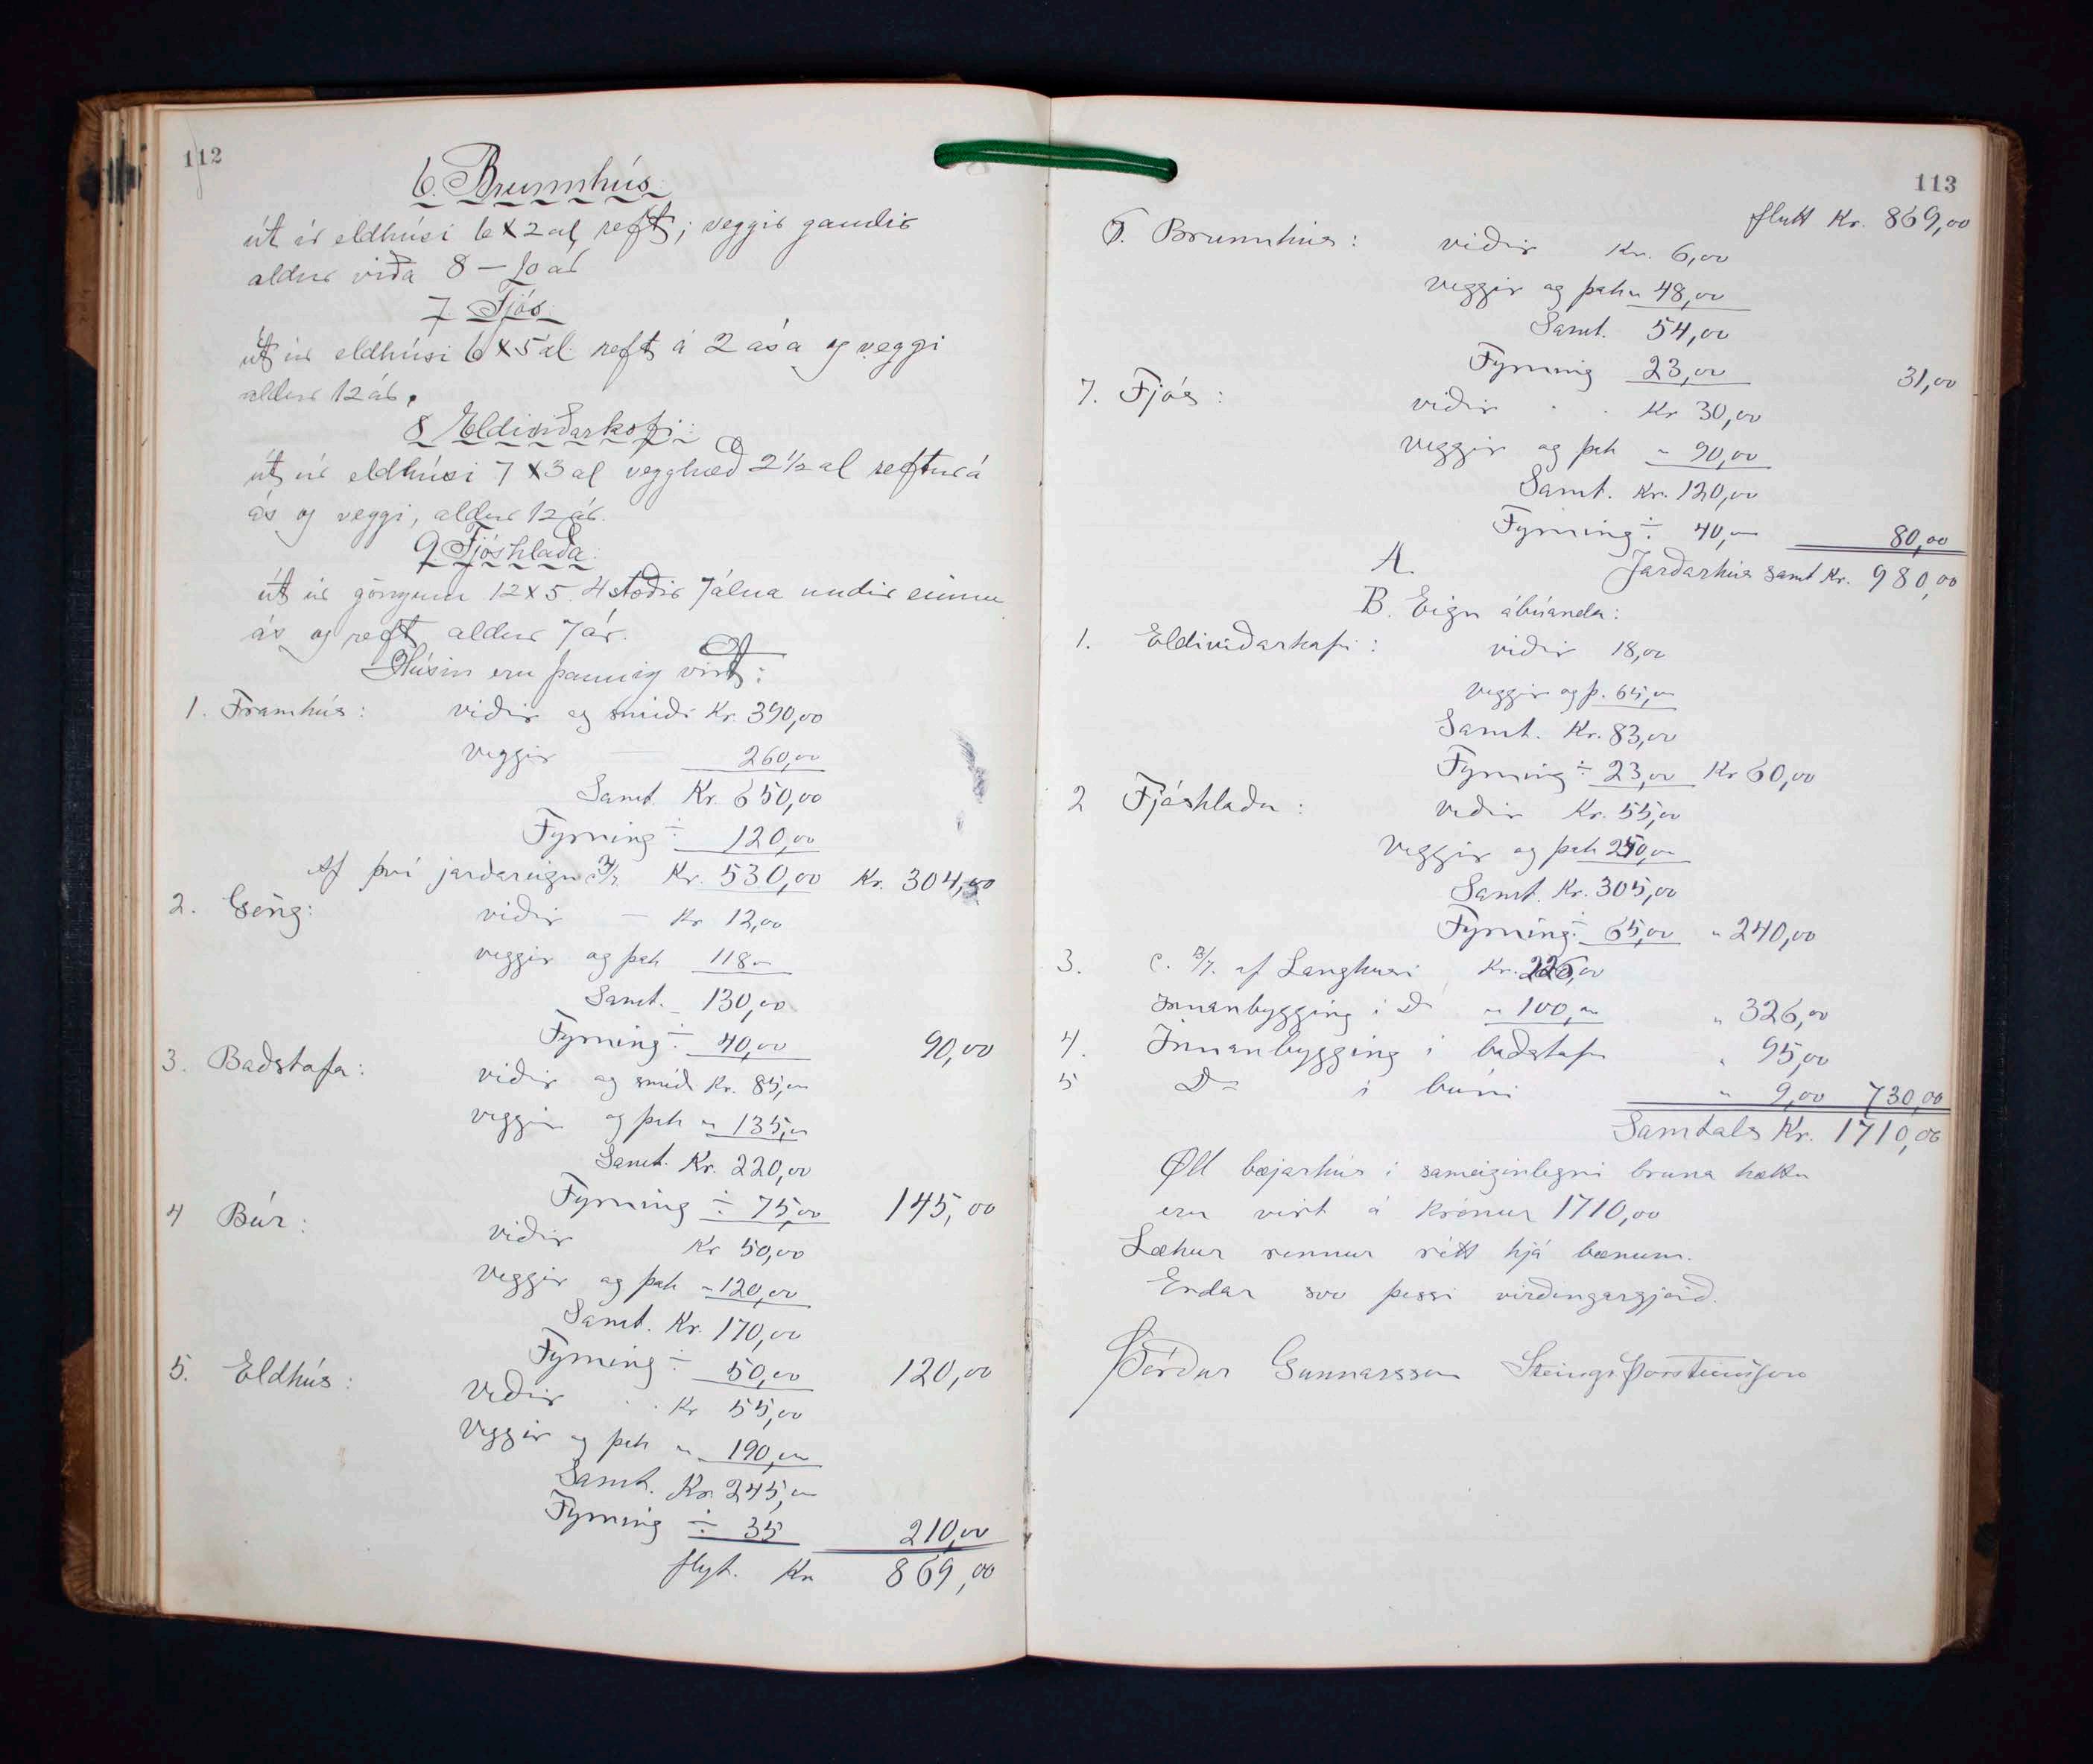 112
6. Brunnhús
út úr eldhúsi 6x2 al, reft; veggir gamlir
aldur viða 8 – 10 ár
7. Fjós.
út úr eldhúsi 6x5 al. reft á 2 ása og veggi
aldur 12 ár.
8 Eldiviðarkofi:
út úr eldhúsi 7x3 al vegghæð 2 1/2 al reftur á
ás og veggi, aldur 12 ár.
9 Fjóshlaða:
út úr göngum 12x5. 4 stoðir 7 álna undir einum
ás og reft, aldur 7 ár.
Húsin eru þannig virt:
1. Framhús: viðir og smiði Kr. 390,00
veggir — 260,00
Samt. Kr. 650,00
Fyrning ÷ 120,00
Af því jarðareign 4/7 Kr. 530,00 Kr. 304,00
2. Göng: viðir — Kr 12,00
veggir og þak 118 –
Samt. 130,00
Fyrning ÷ 40,00 90,00
3. Baðstofa: viðir og smíði Kr. 85,00
veggir og þak " 135,00
Samt. Kr. 220,00
Fyrning ÷ 75,00 145,00
4 Búr: viðir Kr 50,00
veggir og þak " 120,00
Samt. Kr. 170,00
Fyrning ÷ 50,00 120,00
5. Eldhús: viðir . . Kr 55,00
veggir og þak " 190,00
Samt. Kr. 245,00
Fyrning ÷ 35 210,00
flyt. Kr 869,00
113
flutt Kr. 869,00
6. Brunnhús: viðir Kr. 6,00
veggir og þak " 48,00
Samt. 54,00
Fyrning 23,00 31,00
7. Fjós: viðir . . Kr 30,00
veggir og þak " 90,00
Samt. Kr. 120,00
Fyrning ÷ 40,00 80,00
A. Jarðarhús samt Kr. 980,00
B. Eign ábúanda:
1. Eldiviðarkofi: viðir 18,00
veggir og þ. 65,00
Samt. Kr. 83,00
Fyrning ÷ 23,00 Kr 60,00
2 Fjóshlaða: viðir Kr. 55,00
veggir og þak 250,00
Samt. Kr. 305,00
Fyrning ÷ 65,00 " 240,00
3. c. 3/7. af Langhúsi Kr. 226,00
Innanbygging i Do " 100,00 " 326,00
4. Innanbygging i baðstofu " 95,00
5 Do i búri " 9,00 730,00
Samtals Kr. 1710,00
Öll bæjarhús i sameiginlegri bruna hættu
eru virt á Krónur 1710,00
Lækur rennur rétt hjá bænum.
Endar svo þessi virðingargjörð.
Þórður Gunnarsson Steingr Þorsteinsson